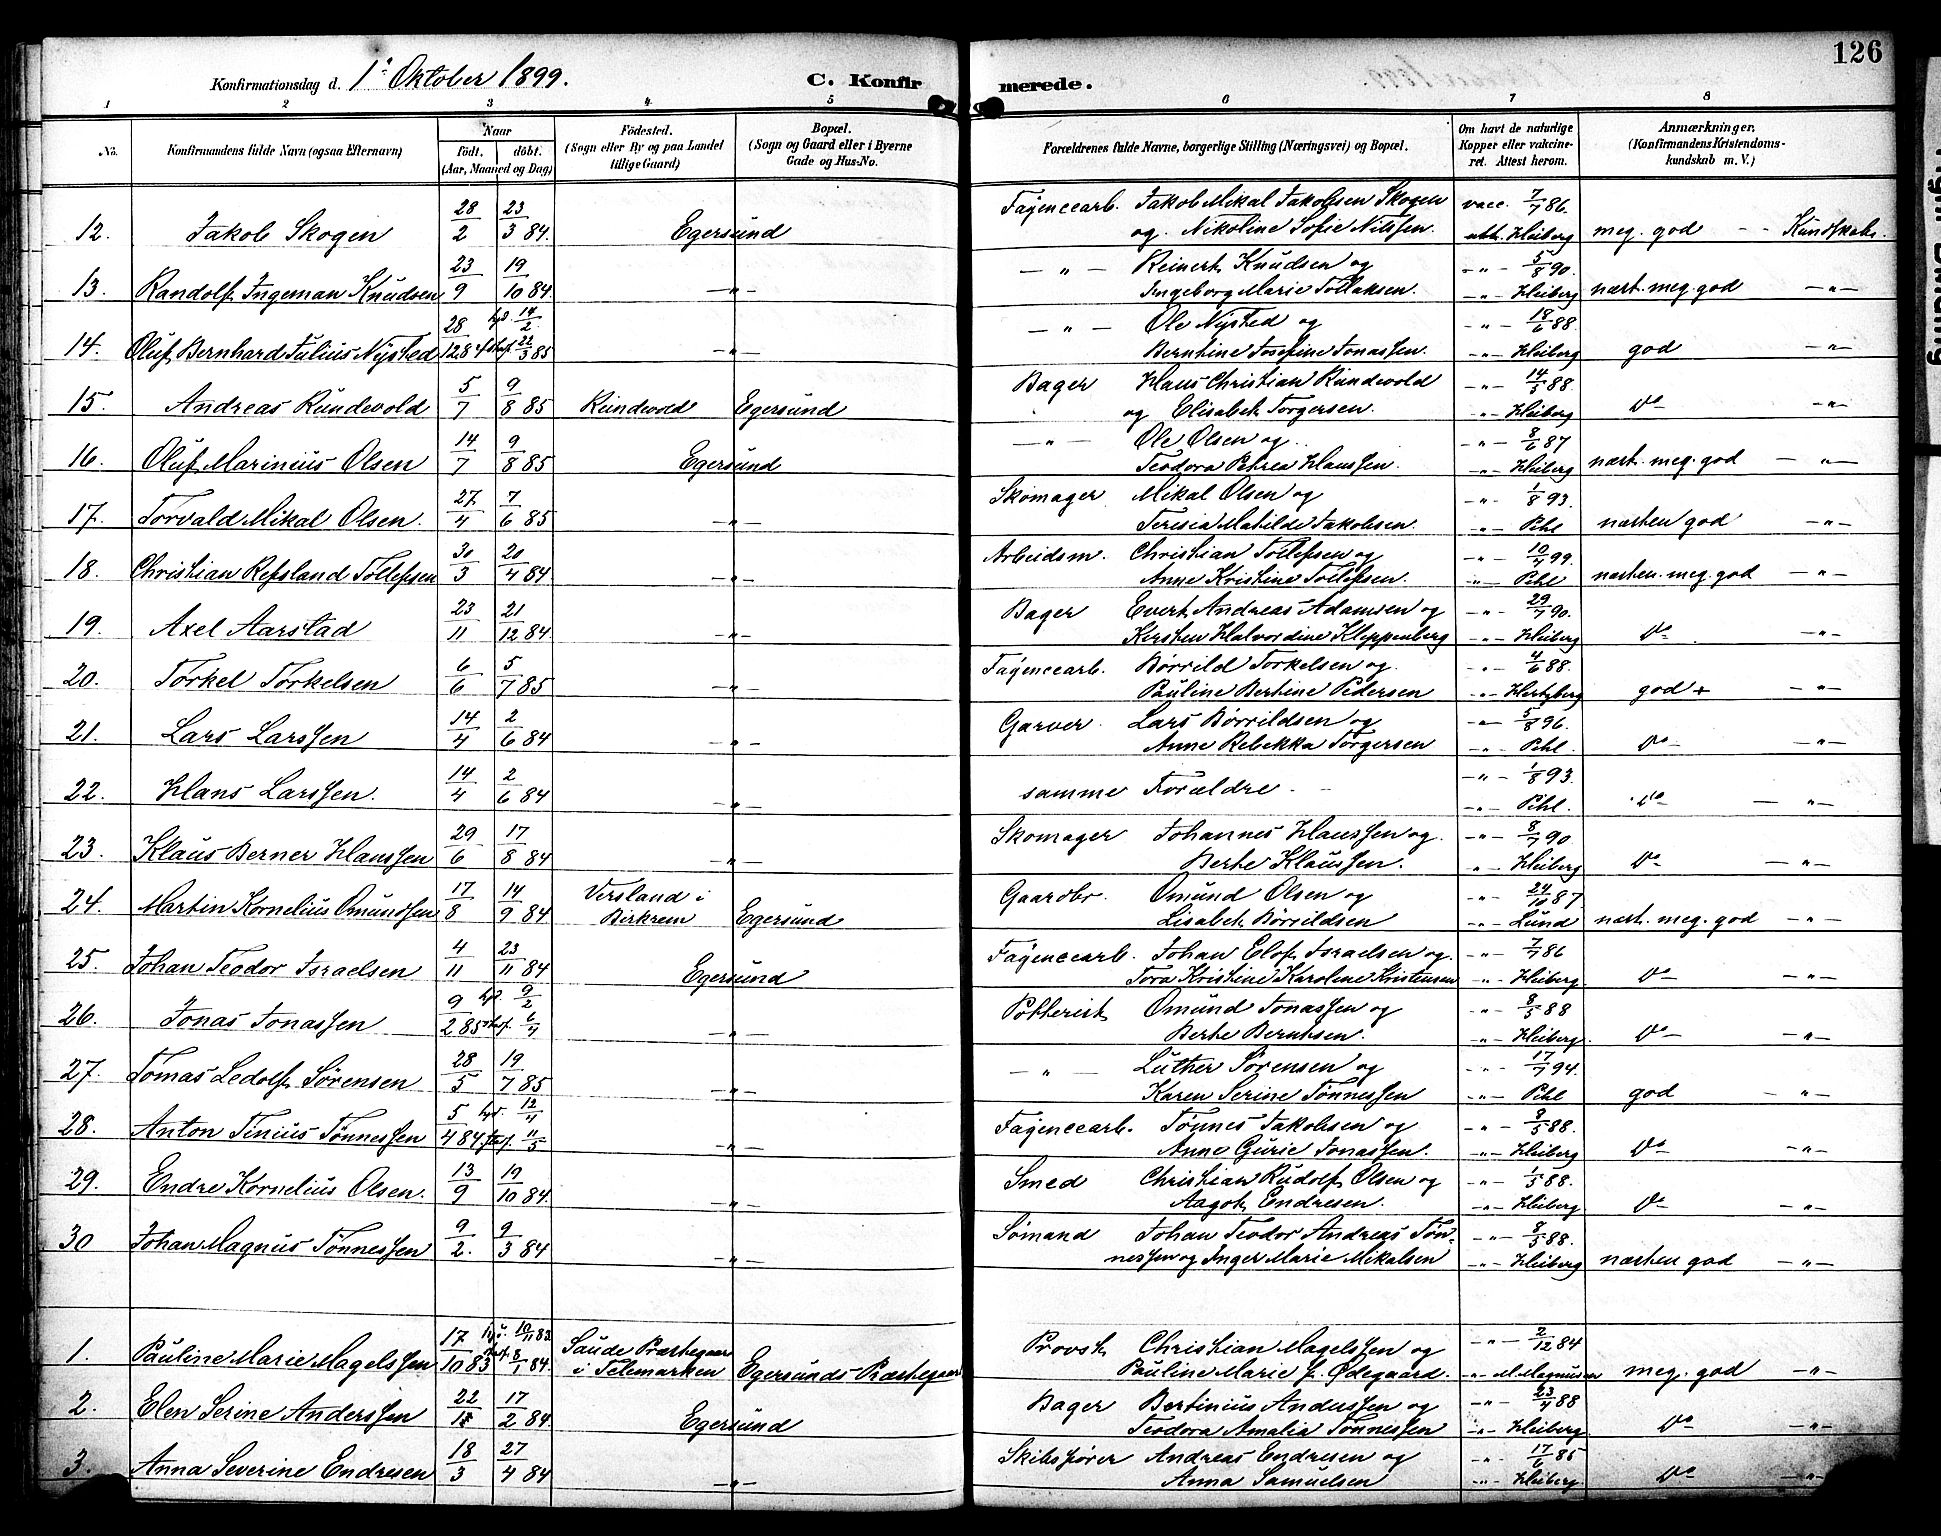 126
Konfirmationsdag d. 1ste Oktober 1899. C. Konfirmerede.
1 2 3 4. 5 6 7 8
No. Konfirmandens fulde Navn (ogsaa Efternavn) Naar födt. döbt. (Aar, Maaned og Dag) Födested. (Sogn eller By og paa Landet tillige Gaard) Bopæl. (Sogn og Gaard eller i Byerne Gade og Hus-No. Forældrenes fulde Navne, borgerlige Stilling (Næringsvei) og Bopæl. Om havt de naturlige Kopper eller vakcineret. Attest herom. Anmærkninger. (Konfirmandens Kristendomskundskab m. V.)
12. Jakob Skogen 28/2 23/3 84. Egersund Fayencearb. Jakob Mikal Jakobsen Skogen og Nikoline Sofie Nilssen. vacc. 7/7 86. att. Heiberg meg. god - - Kundskab.
13. Randolf Ingeman Knudsen 23/9 19/10 84. -"- -"- Reinert Knudsen og Ingeborg Marie Tollaksen. -"- 5/8 90. -"- Heiberg næst. meg. god -"-
14. Oluf Bernhard Julius Nysted 28/12 84 hjd. 14/2 stdf. 22/3 85 -"- -"- Ole Nysted og Berntine Josefine Jonassen. -"- 18/6 88. -"- Heiberg god -"-
15. Andreas Rundevold 5/7 9/8 85 Rundevold Egersund Bager Hans Christian Rundevold og Elisabet Torgersen. -"- 14/5 88. -"- Heiberg Do -"-
16. Oluf Marinius Olsen 14/7 9/8 85 Egersund -"- Ole Olsen og Teodora Petrea Hanssen. -"- 8/6 87 -"- Heiberg næst. meg. god -"-
17. Torvald Mikal Olsen. 27/4 7/6 85 -"- Skomager Mikal Olsen og Teresia Matilde Jakobsen. -"- 1/8 93. -"- Pihl næsten god -"-
18. Christian Refsland Tollefsen 30/3 20/4 84 -"- Arbeidsm. Christian Tollefsen og Anne Kristine Tollefsen. -"- 10/4 99. -"- Pihl næsten. meg. god -"-
19. Axel Aarstad 23/11 21/12 84. -"- Bager Evert Andreas Adamsen og Kirsten Halvordine Kleppenberg -"- 29/7 90. -"- Heiberg Do -"-
20. Torkel Torkelsen 6/6 5/7 85 -"- Fayencearb. Børrild Torkelsen og. Pauline Bertine Pedersen -"- 4/6 88. -"- Hertzberg god + -"-
21. Lars Larssen 14/4 2/6 84 -"- Garver. Lars Børrildsen og Anne Rebekka Torgersen -"- 5/8 96. -"- Pihl. Do -"-
22. Hans Larssen. 14/4 2/6 84 -"- samme Forældre -"- 1/8 93. -"- Pihl. Do -"-
23. Klaus Berner Hanssen 29/6 17/8 84 -"- Skomager Johannes Hanssen og. Berte Klaussen. -"- 8/7 90. -"- Heiberg Do -"-
24. Martin Kornelius Omundsen 17/8 14/9 84 Versland i Birkrem Egersund Gaardbr. Omund Olsen og Lisabet Børrildsen -"- 24/10 87. -"- Lund næst. meg. god -"-
25. Johan Teodor Israelsen 4/11 23/11 84 Egersund Fayencearb. Johan Elof Israelsen og. Tora Kristine Karoline Kristensen -"- 7/7 86 -"- Heiberg. Do -"-
26. Jonas Jonassen 9/2 85 hjd. 9/2 stdf. 6/4 -"- Potterist Omund Jonassen og Berte Berntsen. -"- 8/5 88 -"- Heiberg. Do -"-
27. Tomas Ledolf Sørensen 28/5 19/7 85 -"- -"- Luther Sørensen og Karen Serine Tønnessen -"- 17/7 94. -"- Pihl god -"-
28. Anton Tinius Tønnessen 5/4 84 hjd. 12/4 stdf. 11/5 -"- Fayencearb. Tønnes Jakobsen og Anne Gurie Jonassen. -"- 8/5 88. -"- Heiberg Do -"-
29. Endre Kornelius Olsen. 13/9 19/10 84. -"- Smed Christian Rudolf Olsen og Aagot Endresen. -"- 1/5 88. -"- Heiberg Do -"-
30 Johan Magnus Tønnessen 9/2. 9/3 84 -"- Sømand Johan Teodor Andreas Tønnessen og Inger Marie Mikalsen -"- 8/5 88. -"- Heiberg næsten god -"-
1. Pauline Marie Magelssen 17/10 83 10/11 83. 8/1 84. Saude Præstegaar i Telemarken Egersunds Præstegaar Provst Christian Magelssen og Pauline Marie f. Ødegaard. -"- 2/12 84 -"- M. Magnussen meg. god -"-
2. Elen Serine Anderssen 22/1 17/2 84. Egersund Bager Bertinius Anderssen og Teodora Amalia Tønnessen -"- 23/4 88 -"- Heiberg Do -"-
3. Anna Severine Endresen 18/3 27/4 84 -"- Skibsfører Andreas Endresen og Anna Samuelsen -"- 17/6 85 -"- Heiberg. Do -"-